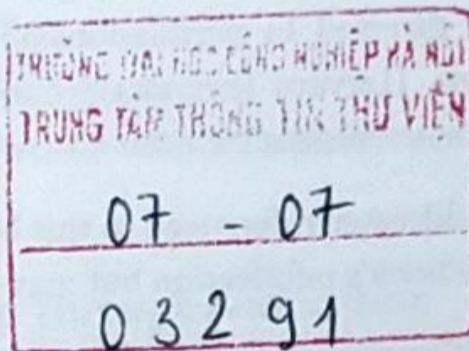 TRƯỜNG ĐẠI HỌC CÔNG NGHIỆP HÀ NỘI
TRUNG TÂM THÔNG TIN THƯ VIỆN
07 - 07
03291